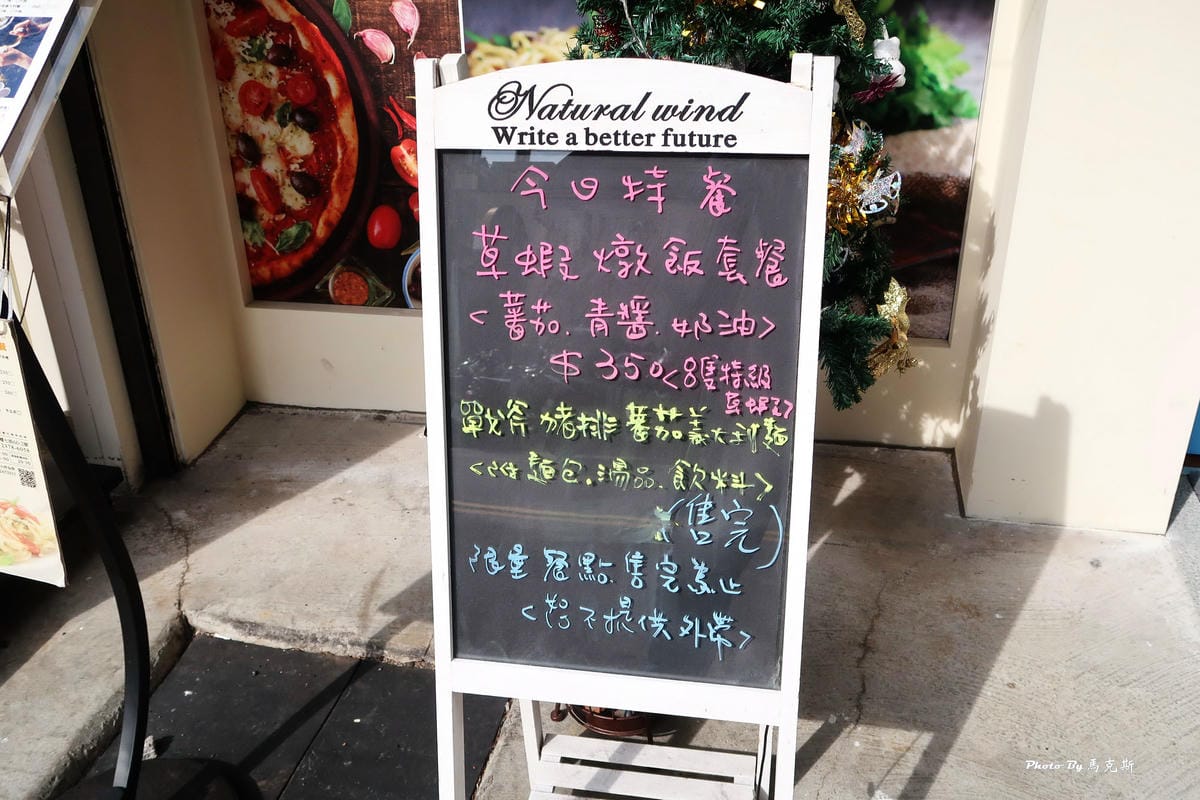 Natural wind
Write a better future
今日特餐
草蝦燉飯套餐
<蕃茄.青醬.奶油>
$350<8隻特級
草蝦>
戰斧豬排蕃茄義大利麵
<附麵包.湯品.飲料>
(售完)
限量餐點.售完為止
<恕不提供外帶>
Photo By 馬克斯